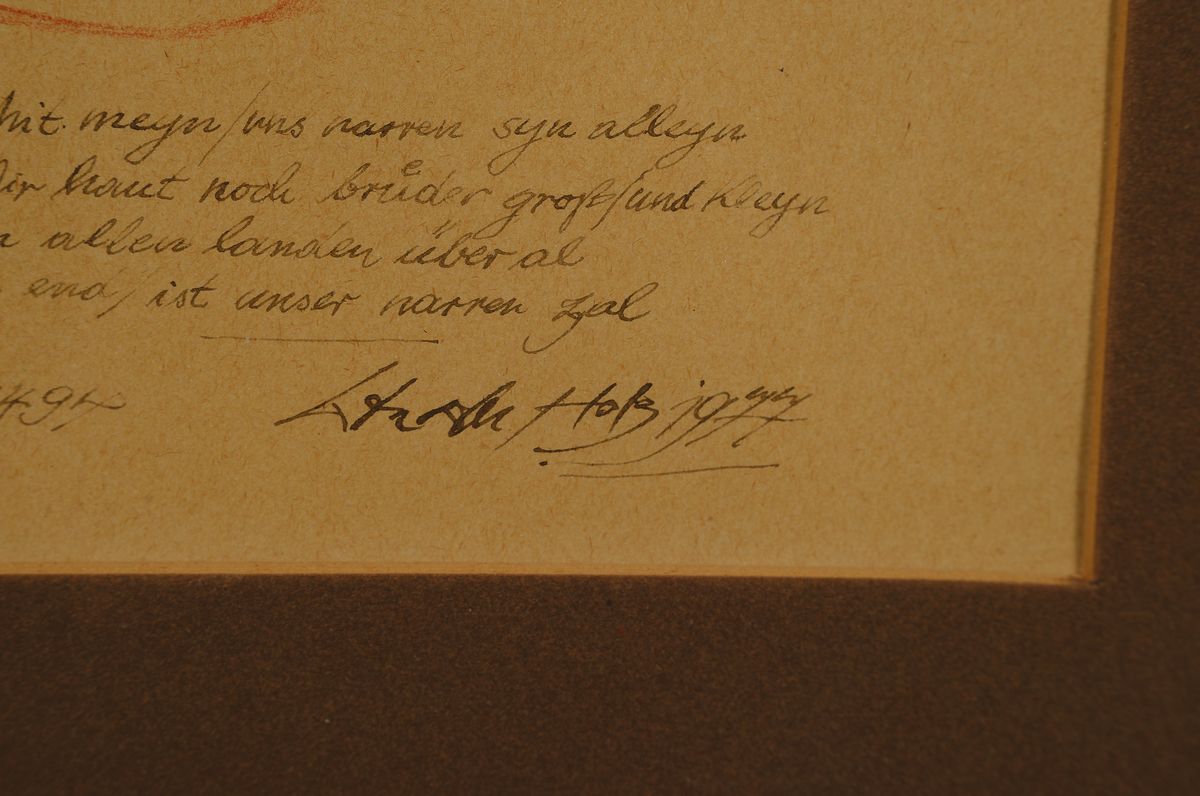 nit meyn/uns narren syn alleyn
Wir hant noch brůder groß/und kleyn
allen landen über al
end/ist unser narren zal
1494 1977